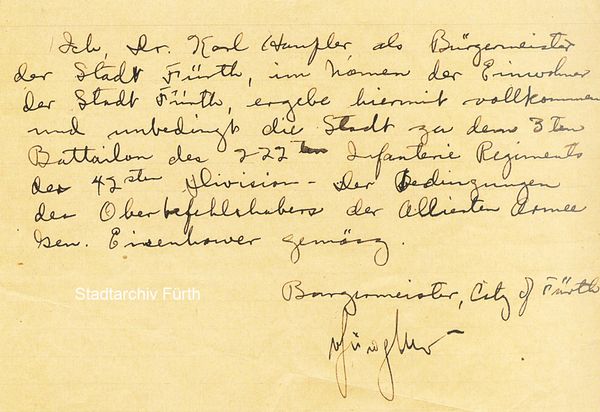 Ich, Dr. Karl Häupler als Bürgermeister
der Stadt Fürth, im Namen der Einwohner
der Stadt Fürth, ergebe hiermit vollkommen
und unbedingt die Stadt zu dem 3ten
Battailon des 222ten Infanterie Regiments
der 42sten Division - Der Bedingungen
des Oberbefehlshabers der Allierten Armee
Gen. Eisenhower gemäsz.
Burgermeister, City of Fürth
Stadtarchiv Fürth